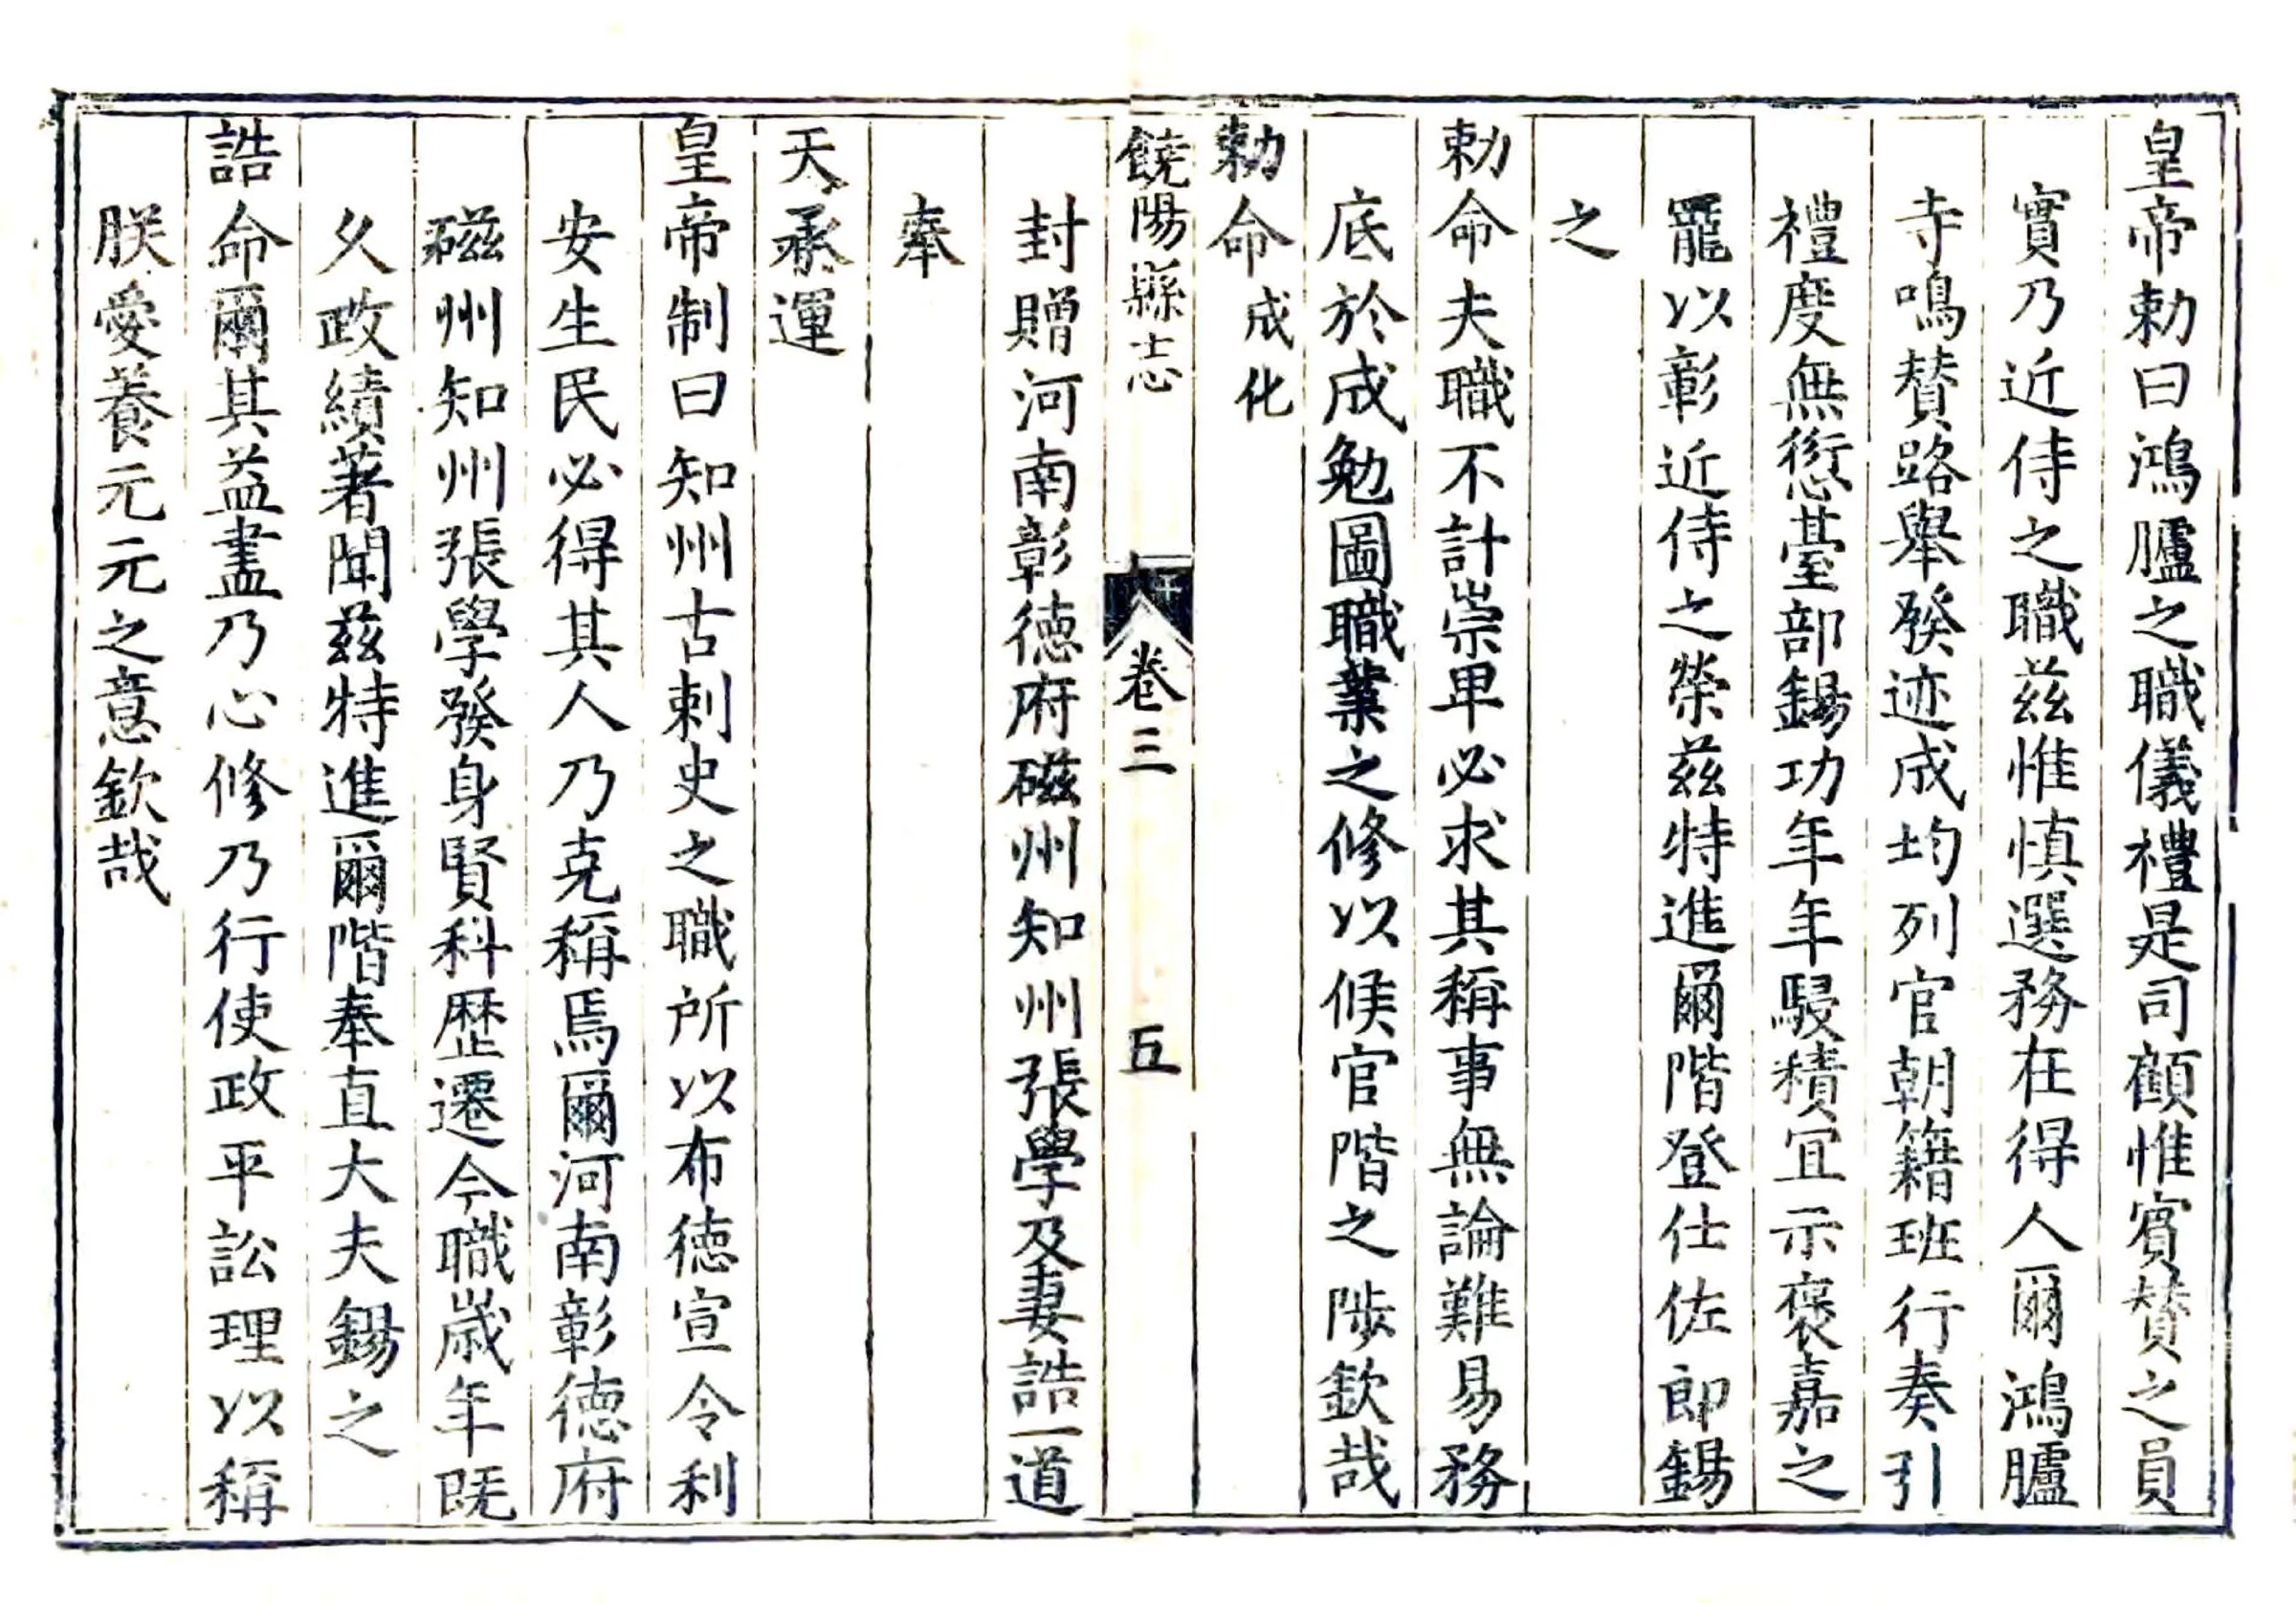 皇帝勅曰鴻臚之職儀禮是司顧惟賓賛之員
實乃近侍之職兹惟慎選務在得人爾鴻臚
寺鳴賛路舉發迹成均列官朝籍班行奏引
禮度無愆臺部錫功年年駸積宜示褒嘉之
寵以彰近侍之榮兹特進爾階登仕佐郎錫
之
勅命夫職不計崇卑必求其稱事無論難易務
底於成勉圖職業之修以候官階之陟欽哉
勅命成化
饒陽縣志 卷三 五
封贈河南彰德府磁州知州張學及妻誥一道
奉
天承運
皇帝制曰知州古刺史之職所以布德宣令利
安生民必得其人乃克稱焉爾河南彰德府
磁州知州張學發身賢科歷遷今職歲年既
久政績著聞兹特進爾階奉直大夫錫之
誥命爾其益盡乃心修乃行使政平訟理以稱
朕愛養元元之意欽哉